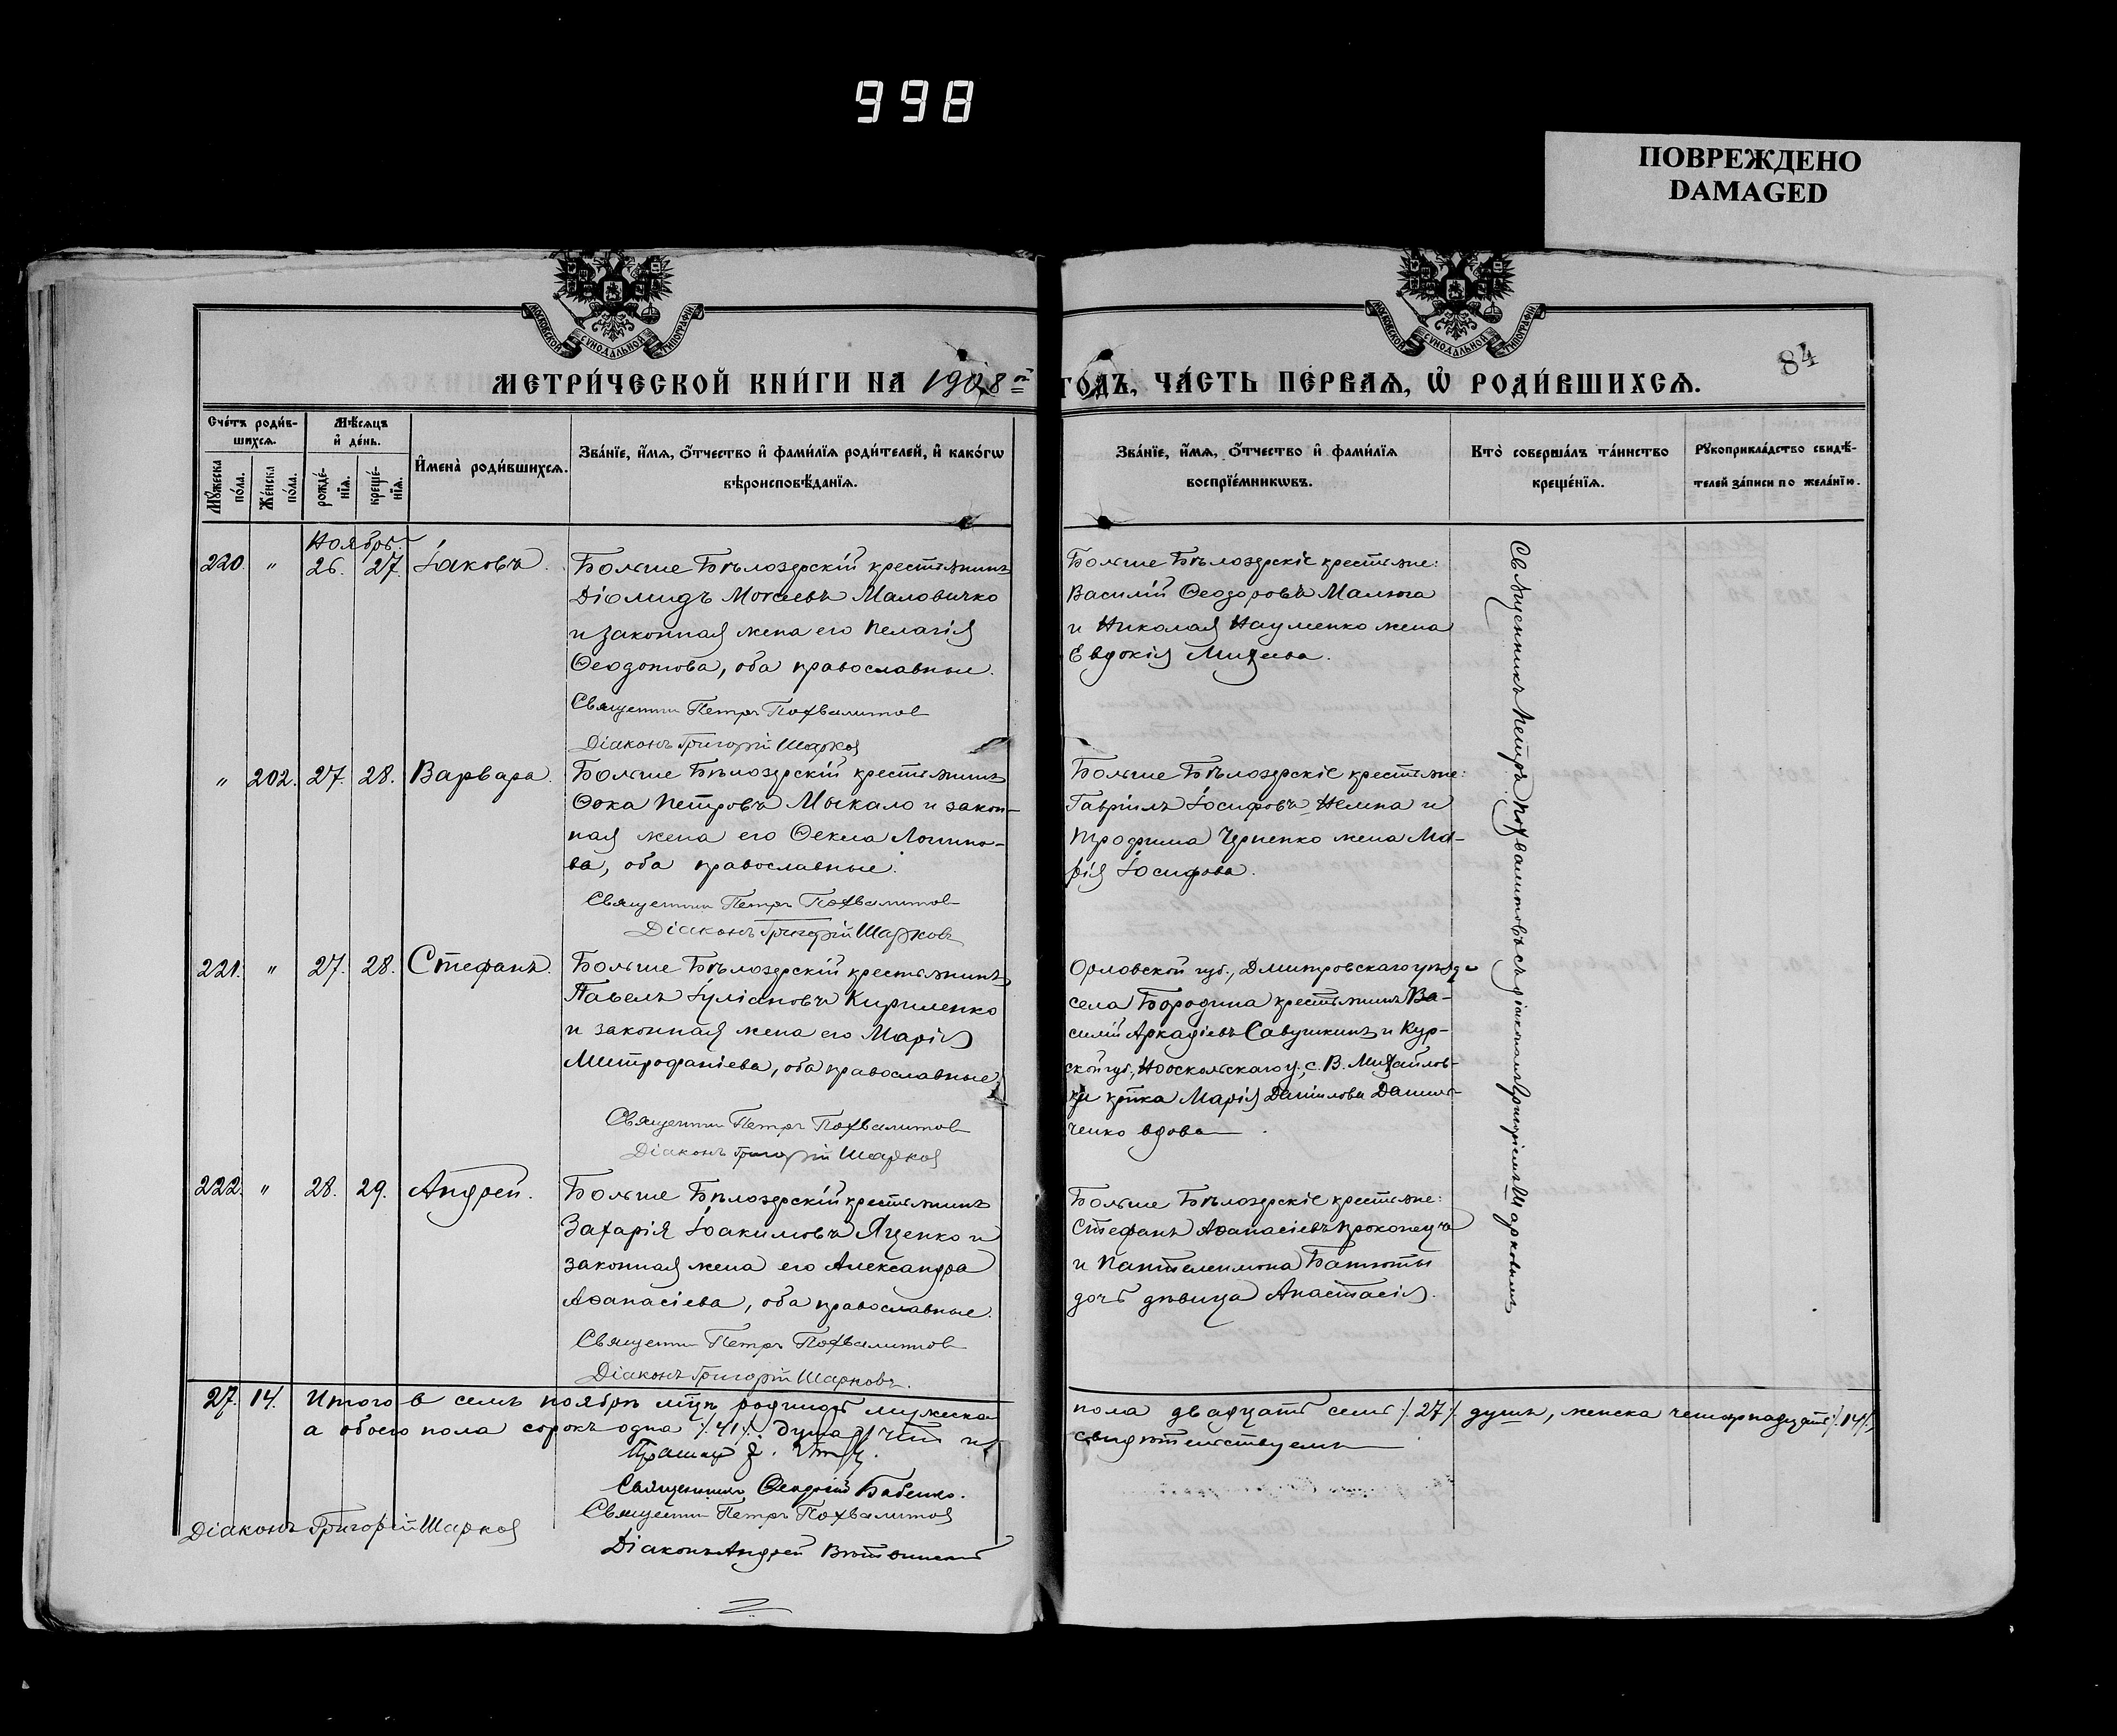 998
ПОВРЕЖДЕНО
DAMAGED
МОСКОВСКОЙ СѴНОДАЛЬНОЙ ТИПОГРАФІИ
МОСКОВСКОЙ СѴНОДАЛЬНОЙ ТИПОГРАФІИ
84
МЕТРИ́ЧЕСКОЙ КНИ́ГИ НА 1908й ГОДЪ, ЧА́СТЬ ПЕ́РВАѦ, Ѡ҆ РОДИ́ВШИХСѦ.
Сче́тъ роди́в-
шихсѧ.
Мꙋ́жеска по́ла.
Же́нска по́ла.
Мѣ́сѧцъ
и҆ де́нь.
рожде́-
нїѧ.
креще́-
нїѧ.
И҆мена̀ роди́вшихсѧ.
Зва́нїе, и҆́мѧ, ѻ҆́тчество и҆ фами́лїѧ роди́телей, и҆ како́гѡ
вѣроисповѣ́данїѧ.
Зва́нїе, и҆́мѧ, ѻ҆́тчество и҆ фами́лїѧ
воспрїе́мникѡвъ.
Кто̀ соверша́лъ та́инство
креще́нїѧ.
Рꙋкоприкла́дство свидѣ́-
телей за́писи по жела́нїю.
Ноябрь.
220. " 26. 27. Іаковъ.
Больше Бѣлозерскій крестьянинъ
Діомидъ Моѵсеевъ Маловичко
и законная жена его Пелагія
Ѳеодотова, оба православные.
Священни Петръ Похвалитов
Діаконъ Григорій Шарков
Больше Бѣлозерскіе крестьяне:
Василій Ѳеодоровъ Малюга
и Николая Науменко жена
Евдокія Михеева.
Священникъ Петръ Похвалитовъ съ діакономъ Григоріемъ Шарковымъ
" 202. 27. 28. Варвара.
Больше Бѣлозерскій крестьянинъ
Ѳока Петровъ Мыкало и закон-
ная жена его Ѳекла Логино-
ва, оба православные.
Священни Петръ Похвалитов
Діаконъ Григорій Шарковъ
Больше Бѣлозерскіе крестьяне:
Гавріилъ Іосифовъ Нелипа и
Трофима Черненко жена Ма-
рія Іосифова.
221. " 27. 28. Стефанъ.
Больше Бѣлозерскій крестьянинъ
Павелъ Іуліановъ Кириленко
и законная жена его Марія
Митрофаніева, оба православные.
Священни Петръ Похвалитов
Діаконъ Григорій Шарков
Орловской губ., Дмитровскаго уѣзда
села Бородина крестьянинъ Ва-
силій Аркадіевъ Савушкинъ и Кур-
ской губ., Нооскольскаго у., с. В. Михайлов-
ки крѣка Марія Даніилова Данил-
ченко вдова
222. " 28. 29. Андрей.
Больше Бѣлозерскій крестьянинъ
Захарія Іоакимовъ Яценко и
законная жена его Александра
Аѳанасіева, оба православные.
Священни Петръ Похвалитов
Діаконъ Григорій Шарковъ.
Больше Бѣлозерскіе крестьяне:
Стефанъ Аѳанасіевъ Прокопецъ
и Пантелеимона Батюты
дочь дѣвица Анастасія.
27. 14. Итого в семъ ноябрѣ мцѣ родилось мужеска пола двадцать семь /. 27 ./ душъ, женска четырнадцать /. 14 ./,
а обоего пола сорокъ одна /. 41 ./. душа, что и свидѣтельствуемъ
Священникъ Ѳеодосій Бабенко.
Священни Петръ Похвалитов
Діаконъ Григорій Шарков
Діаконъ Андрей